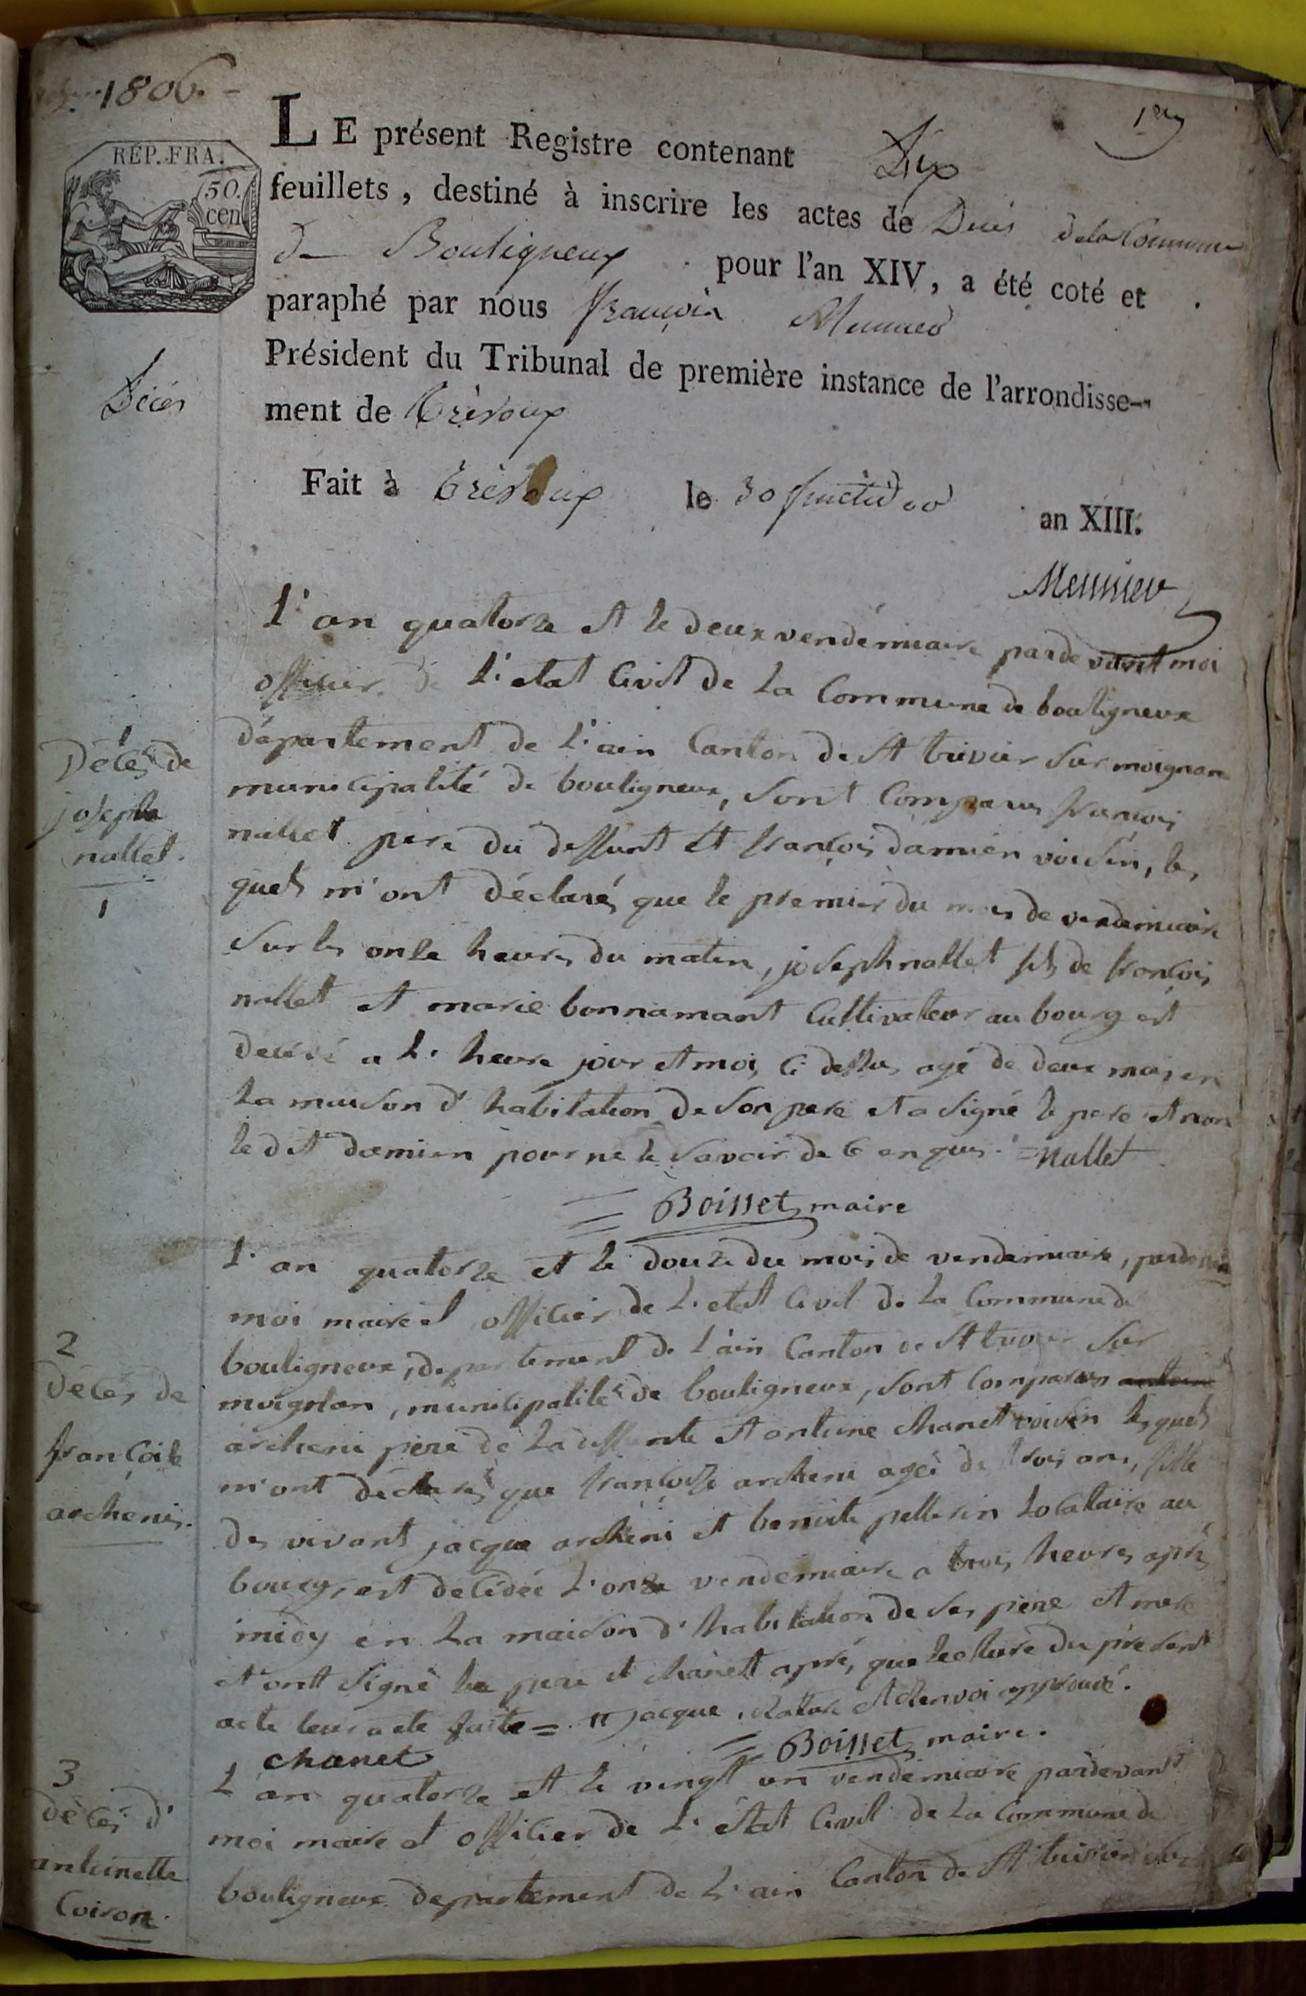 1806.
1er
RÉP. FRA.
50.
cen
LE présent Registre contenant Dix
feuillets, destiné à inscrire les actes de Décés de la Commune
de Bouligneux pour l'an XIV, a été coté et
paraphé par nous françois Meunier
Président du Tribunal de première instance de l'arrondisse-
ment de Trévoux
Décés
Fait à Trévoux le 30 fructidor an XIII.
Meunier
L'an quatorze et le deux vendémiaire pardevant moi
officier de L'etat Civil de La Commune de bouligneux
département de L'ain Canton de St trivier Sur moignan
municipalité de bouligneux, Sont Comparus françois
nallet père du deffunt et françois damien voisin, les
quels m'ont déclarés que le premier du mois de vendemiaire
Sur les onze heures du matin, joseph nallet fils de françois
nallet et marie bonnamant Cultivateur au bourg est
decédé a L'heure jour et mois Ci dessus agé de deux mois en
La maison d'habitation de Son pere et a signé le pere et non
le dit damien pour ne le Savoir de Ce enquis. = Nallet
= Boisset maire
1
Décés de
joseph
nallet.
1
L'an quatorze et le douze du mois de vendemiaire, pardevant
moi maire et officier de L'etat Civil de La Commune de
bouligneux, departement de L'ain Canton de St trivier Sur
moignan, municipalité de bouligneux, Sont Comparus antoine
archeni pere de La deffunte et antoine chanet voisin lesquels
m'ont déclarés que françoise archeni agée de trois ans, fille
des vivant jacque archeni et benoite pellerin Locataire au
bourg, est decédée L'onze vendemiaire a trois heures après
midy en La maison d'habitation de Ses père et mere
et ont signé le pere et chanett après que lecture du présent
acte leur a ete faite = jacque, rature et Renvoi approuvé.
chanet
= Boisset maire.
2
Décés de
françoise
archeni.
L'an quatorze et le vingt un vendémiaire pardevant
moi maire et officier de L'état Civil de La Commune de
bouligneux departement de L'ain Canton de St trivier Sur
3
Décés d'
antoinette
Coiron.